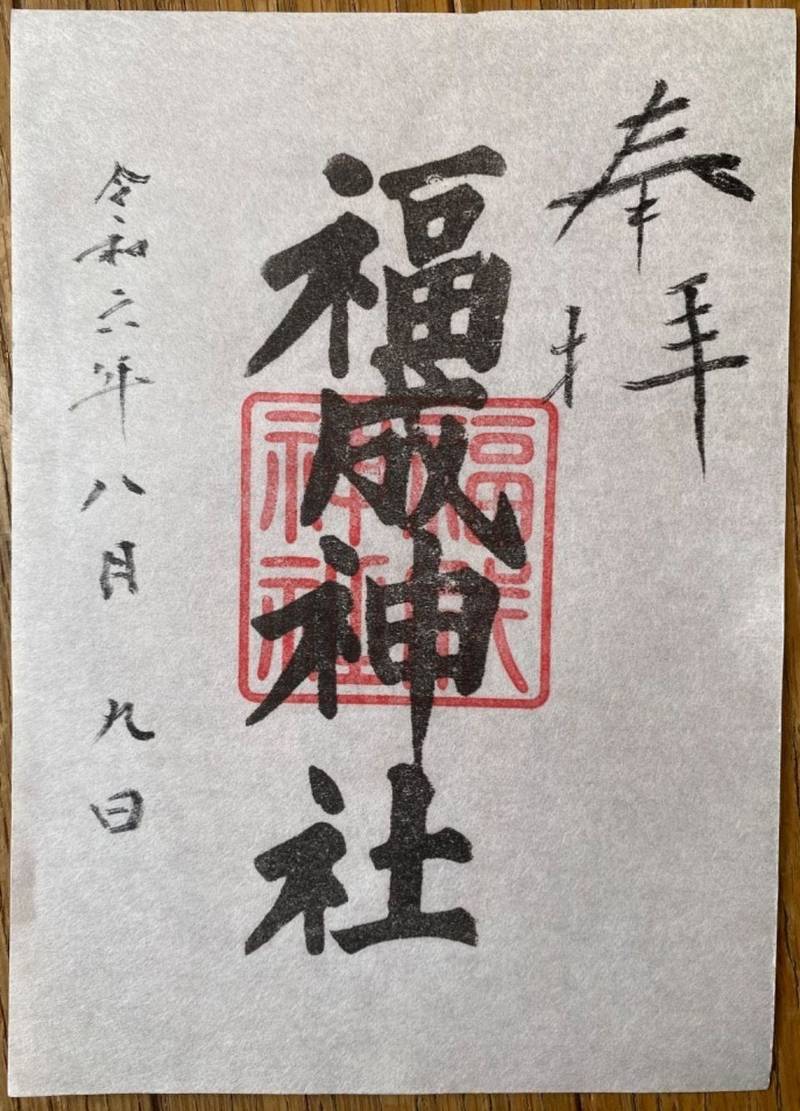 奉拝
福成神社
福成神社
令和六年八月九日